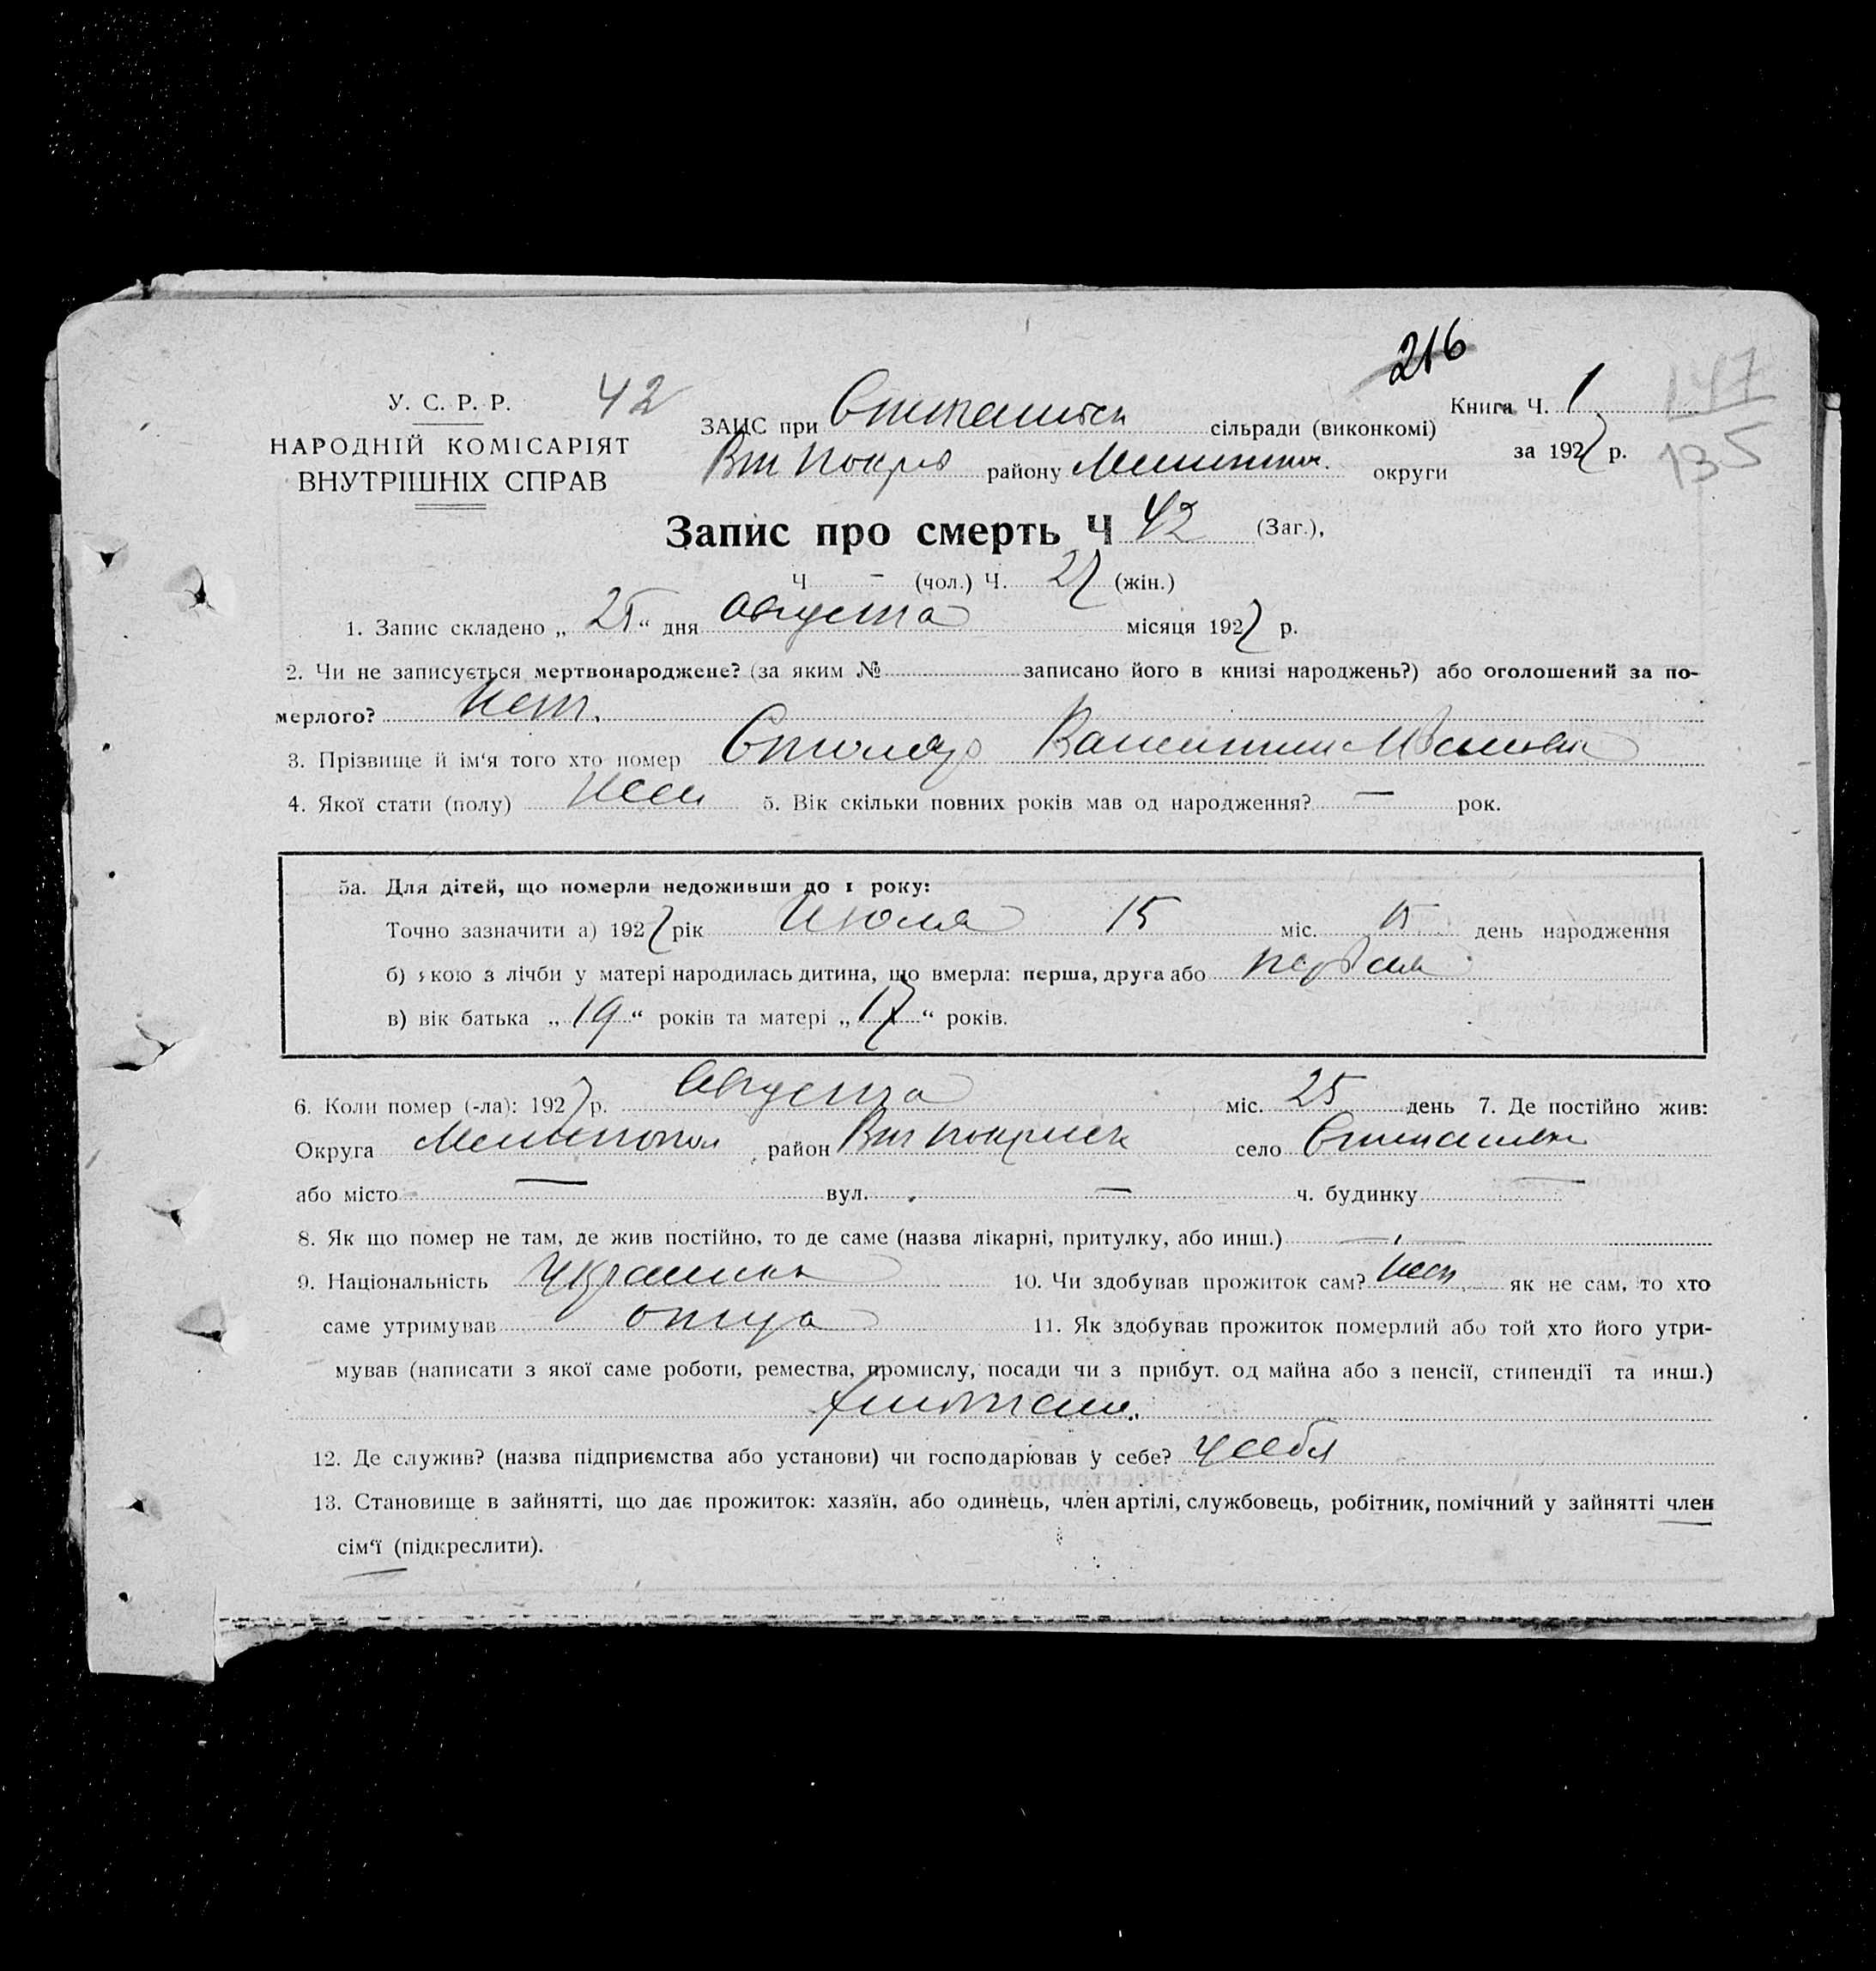 216
У. С. Р. Р. 42
ЗАГС при сільради (виконкомі) Книга Ч. 1 147
НАРОДНІЙ КОМІСАРІЯТ
району округи за 1927 р. 135
ВНУТРІШНІХ СПРАВ
Запис про смерть Ч 42 (Заг.),
Ч – (чол.) Ч. 27 (жін.)
1. Запис складено „ 25 “ дня августа місяця 1927 р.
2. Чи не записується мертвонароджене? (за яким № записано його в книзі народжень?) або оголошений за по-
мерлого? Нет.
3. Прізвище й ім‘я того хто помер Столяр
4. Якої стати (полу) 5. Вік скільки повних років мав од народження? — рок.
5а. Для дітей, що померли недоживши до 1 року:
Точно зазначити а) 1927 рік Июля 15 міс. 15 день народження
б) якою з лічби у матері народилась дитина, що вмерла: перша, друга або первая
в) вік батька „ 19 “ років та матері „ 17 “ років.
6. Коли помер (-ла): 1927 р. Августа міс. 25 день 7. Де постійно жив:
Округа Мелитопол район село
або місто — вул. — ч. будинку —
8. Як що помер не там, де жив постійно, то де саме (назва лікарні, притулку, або инш.) —
9. Національність 10. Чи здобував прожиток сам? нет як не сам, то хто
саме утримував отца 11. Як здобував прожиток померлий або той хто його утри-
мував (написати з якої саме роботи, ремества, промислу, посади чи з прибут. од майна або з пенсії, стипендії та инш.)
12. Де служив? (назва підприємства або установи) чи господарював у себе? у себя
13. Становище в зайнятті, що дає прожиток: хазяїн, або одинець, член артілі, службовець, робітник, помічний у зайнятті член
сім‘ї (підкреслити).